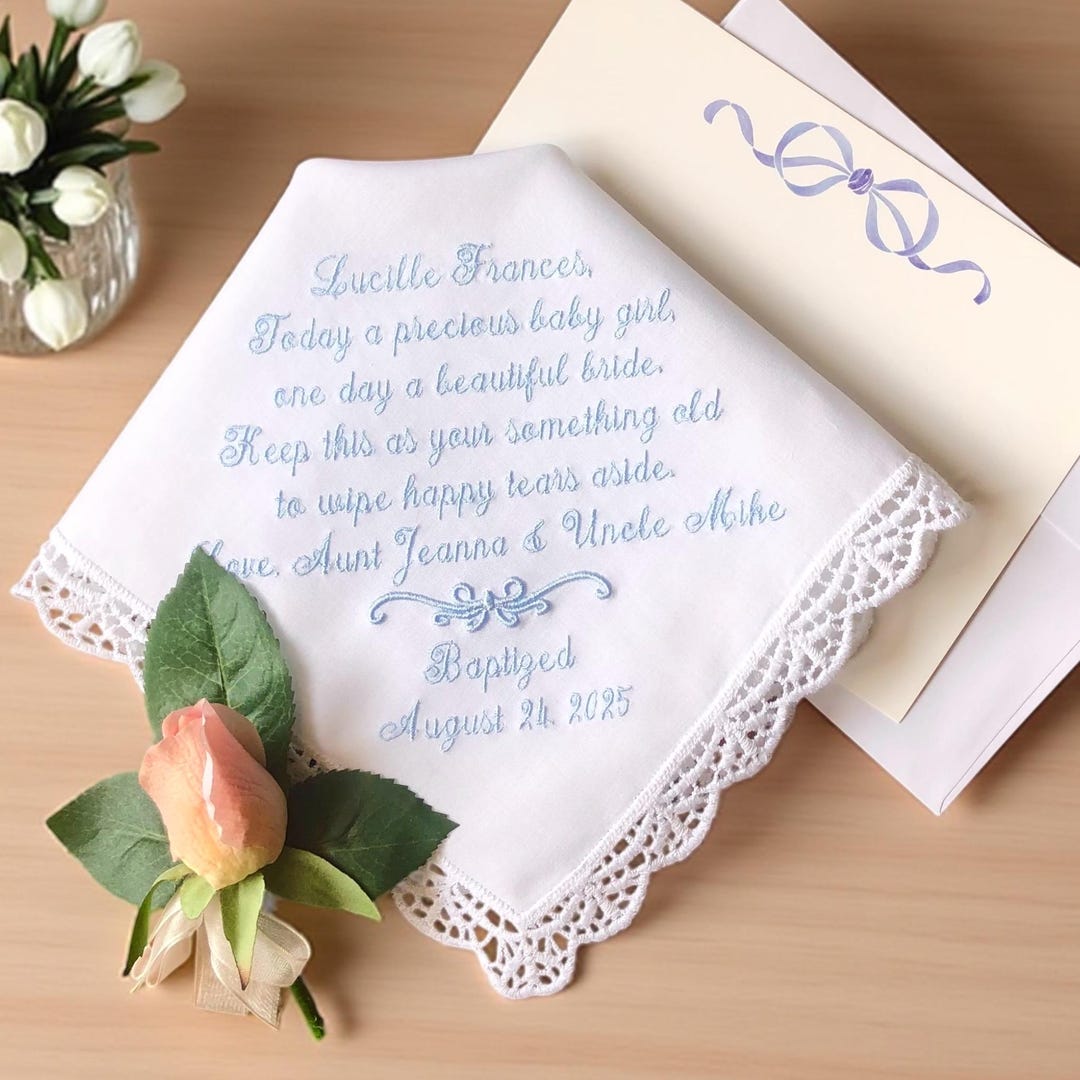 Lucille Frances,
Today a precious baby girl,
one day a beautiful bride.
Keep this as your something old
to wipe happy tears aside.
Love, Aunt Jeanna & Uncle Mike
Baptized
August 24, 2025